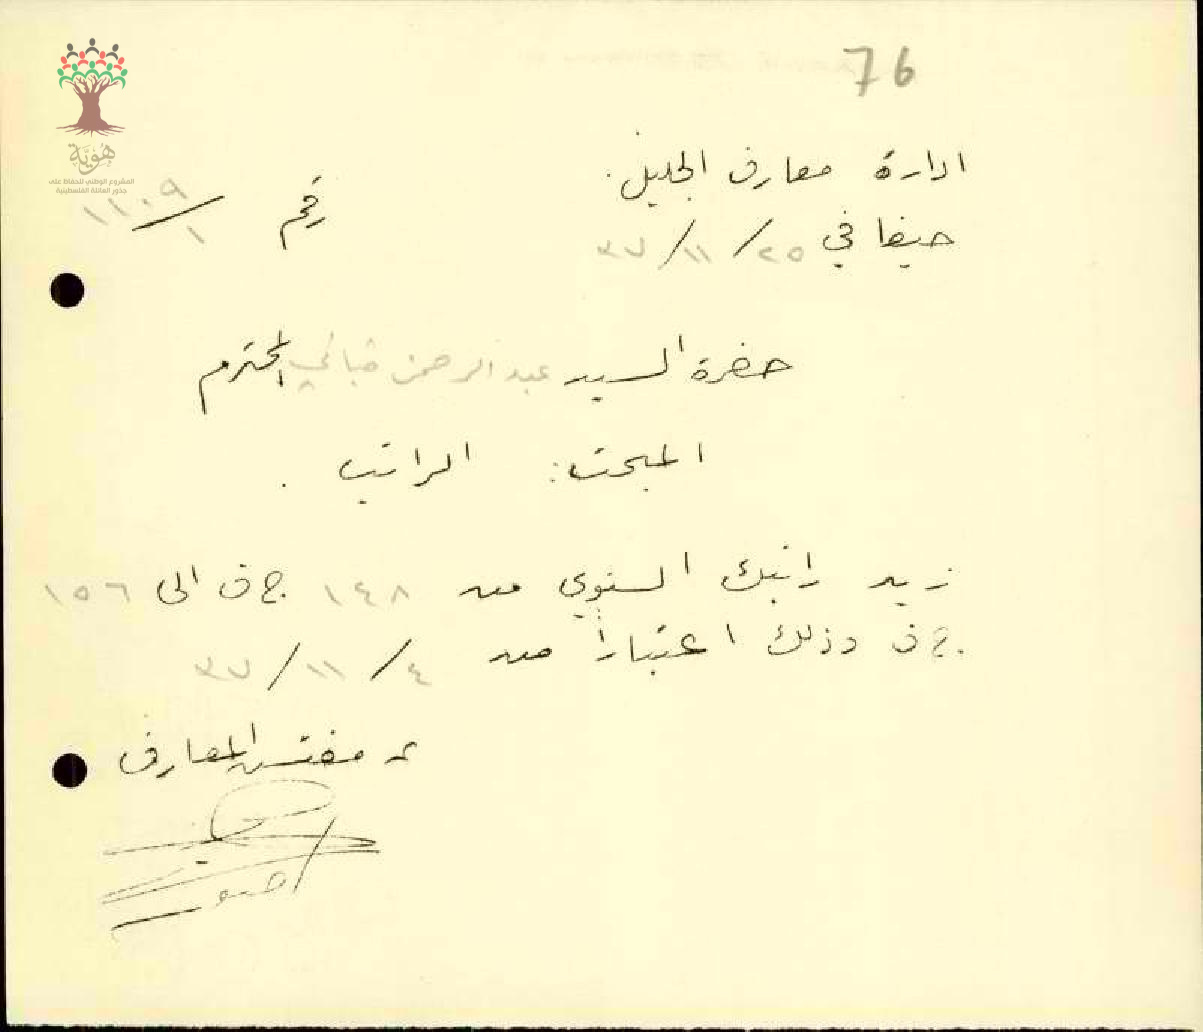 76
هُوِيَّة
المشروع الوطني للحفاظ على
جذور العائلة الفلسطينية
ادارة معارف الجليل.
رقم ١١٠٩/١
حيفا في ٢٥/١١/٣٧
حضرة السيد عبد الرحمن المحترم
المبحث: الراتب.
زيد راتبك السنوي من ١٤٨ ج ف الى ١٥٦
ج ف وذلك اعتباراً من ٤/١١/٣٧
مفتش المعارف